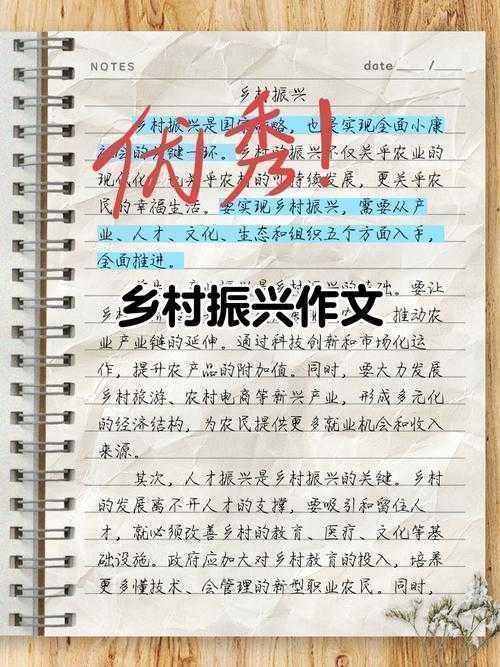 NOTES
date /
乡村振兴
优秀！
乡村振兴是国家战略，也是实现全面小康
社会的关键一环。乡村振兴不仅关乎农业的
现代化，也关乎农村的可持续发展，更关乎农
民的幸福生活。要实现乡村振兴，需要从产
业、人才、文化、生态和组织五个方面入手，
全面推进。
产业振兴是乡村振兴的基础。要让
乡村振兴作文
乡 推动农
业产业链的延伸。通过科技创新和市场化运
作，提升农产品的附加值。同时，要大力发展
乡村旅游、农村电商等新兴产业，形成多元化
的经济结构，为农民提供更多就业机会和收入
来源。
其次，人才振兴是乡村振兴的关键。乡村
的发展离不开人才的支撑，要吸引和留住人
才，就必须改善乡村的教育、医疗、文化等基
础设施。政府应加大对乡村教育的投入，培养
更多懂技术、会管理的新型职业农民。同时，